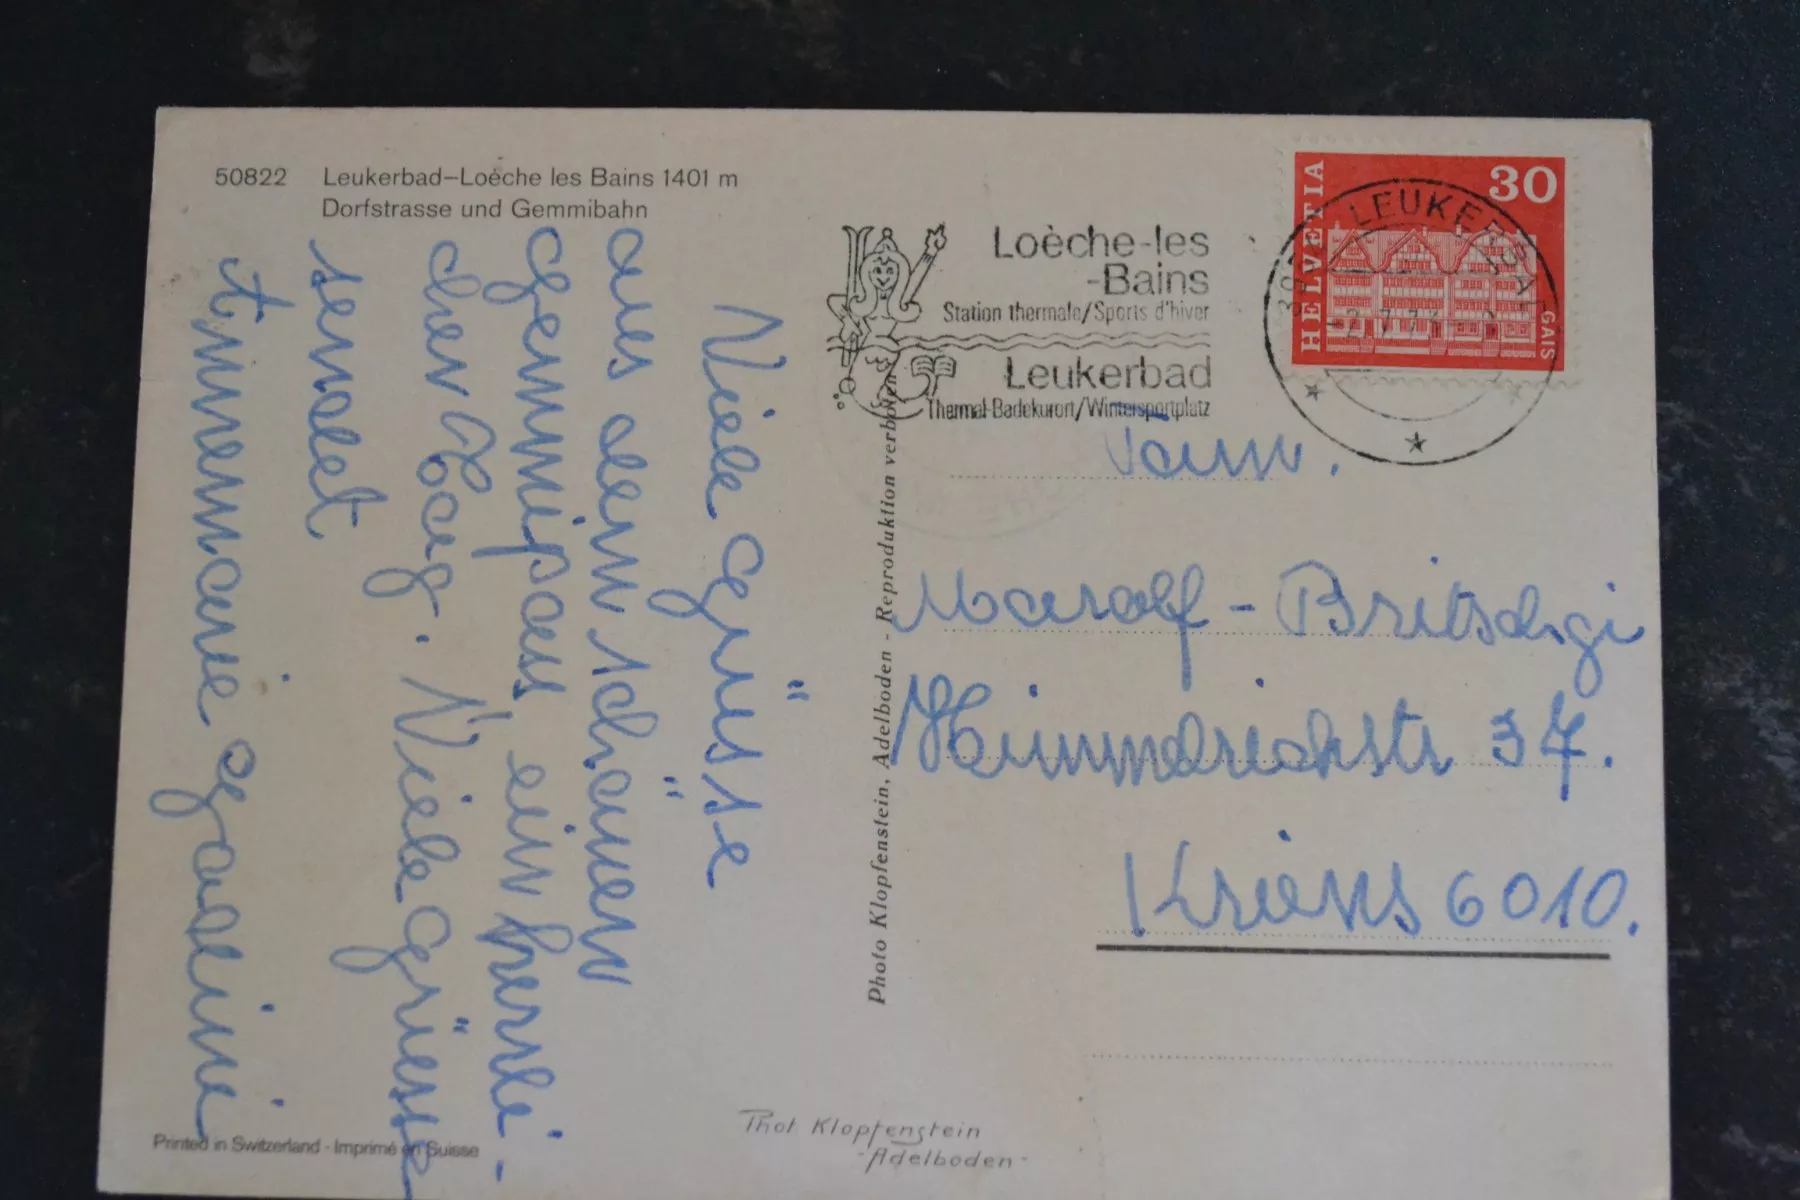 50822 Leukerbad–Loèche les Bains 1401 m
Dorfstrasse und Gemmibahn
Viele Grüsse
aus dem schönen
Gemmipass, ein herrli-
cher Tag. Viele Grüsse
sendet
Annemarie
Printed in Switzerland - Imprimé en Suisse
Photo Klopfenstein, Adelboden - Reproduktion verboten
Phot Klopfenstein
-Adelboden-
Loèche-les
-Bains
Station thermale/Sports d'hiver
Leukerbad
Thermal-Badekurort/Wintersportplatz
HELVETIA
30
GAIS
LEUKERBAD
Fam.
Marolf - Britschgi
Himmelrichstr 37.
Kriens 6010.